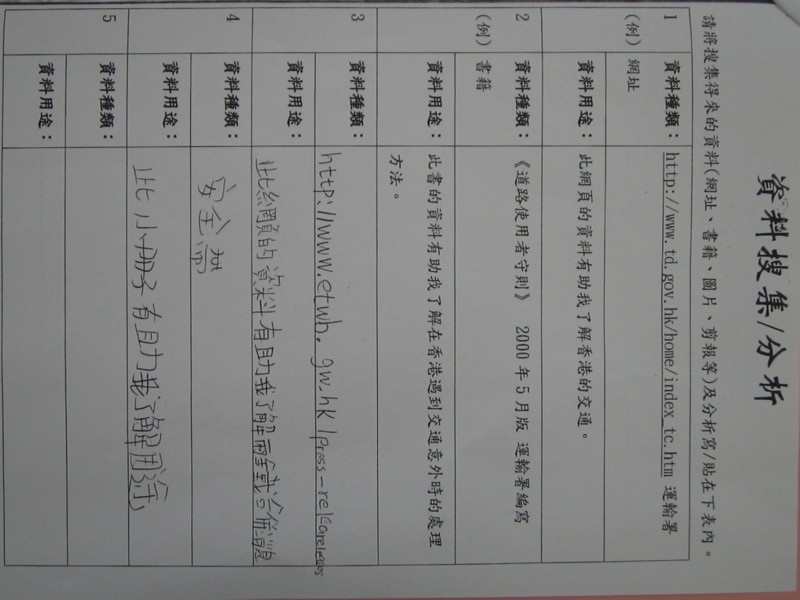 資料搜集/分析
請將搜集得來的資料(網址、書籍、圖片、剪報等)及分析寫/貼在下表內。
1 資料種類： http://www.td.gov.hk/home/index_tc.htm 運輸署
(例) 網址
資料用途： 此網頁的資料有助我了解香港的交通。
2 資料種類： 《道路使用者守則》 2000年5月版 運輸署編寫
(例) 書籍
資料用途： 此書的資料有助我了解在香港遇到交通意外時的處理
方法。
3 資料種類： http://www.etwb.gov.hk/press-release
資料用途： 此網頁的資料有助我了解兩鐵合併
4 資料種類： 安全
資料用途： 此小冊子有助我了解用途
5 資料種類：
資料用途：